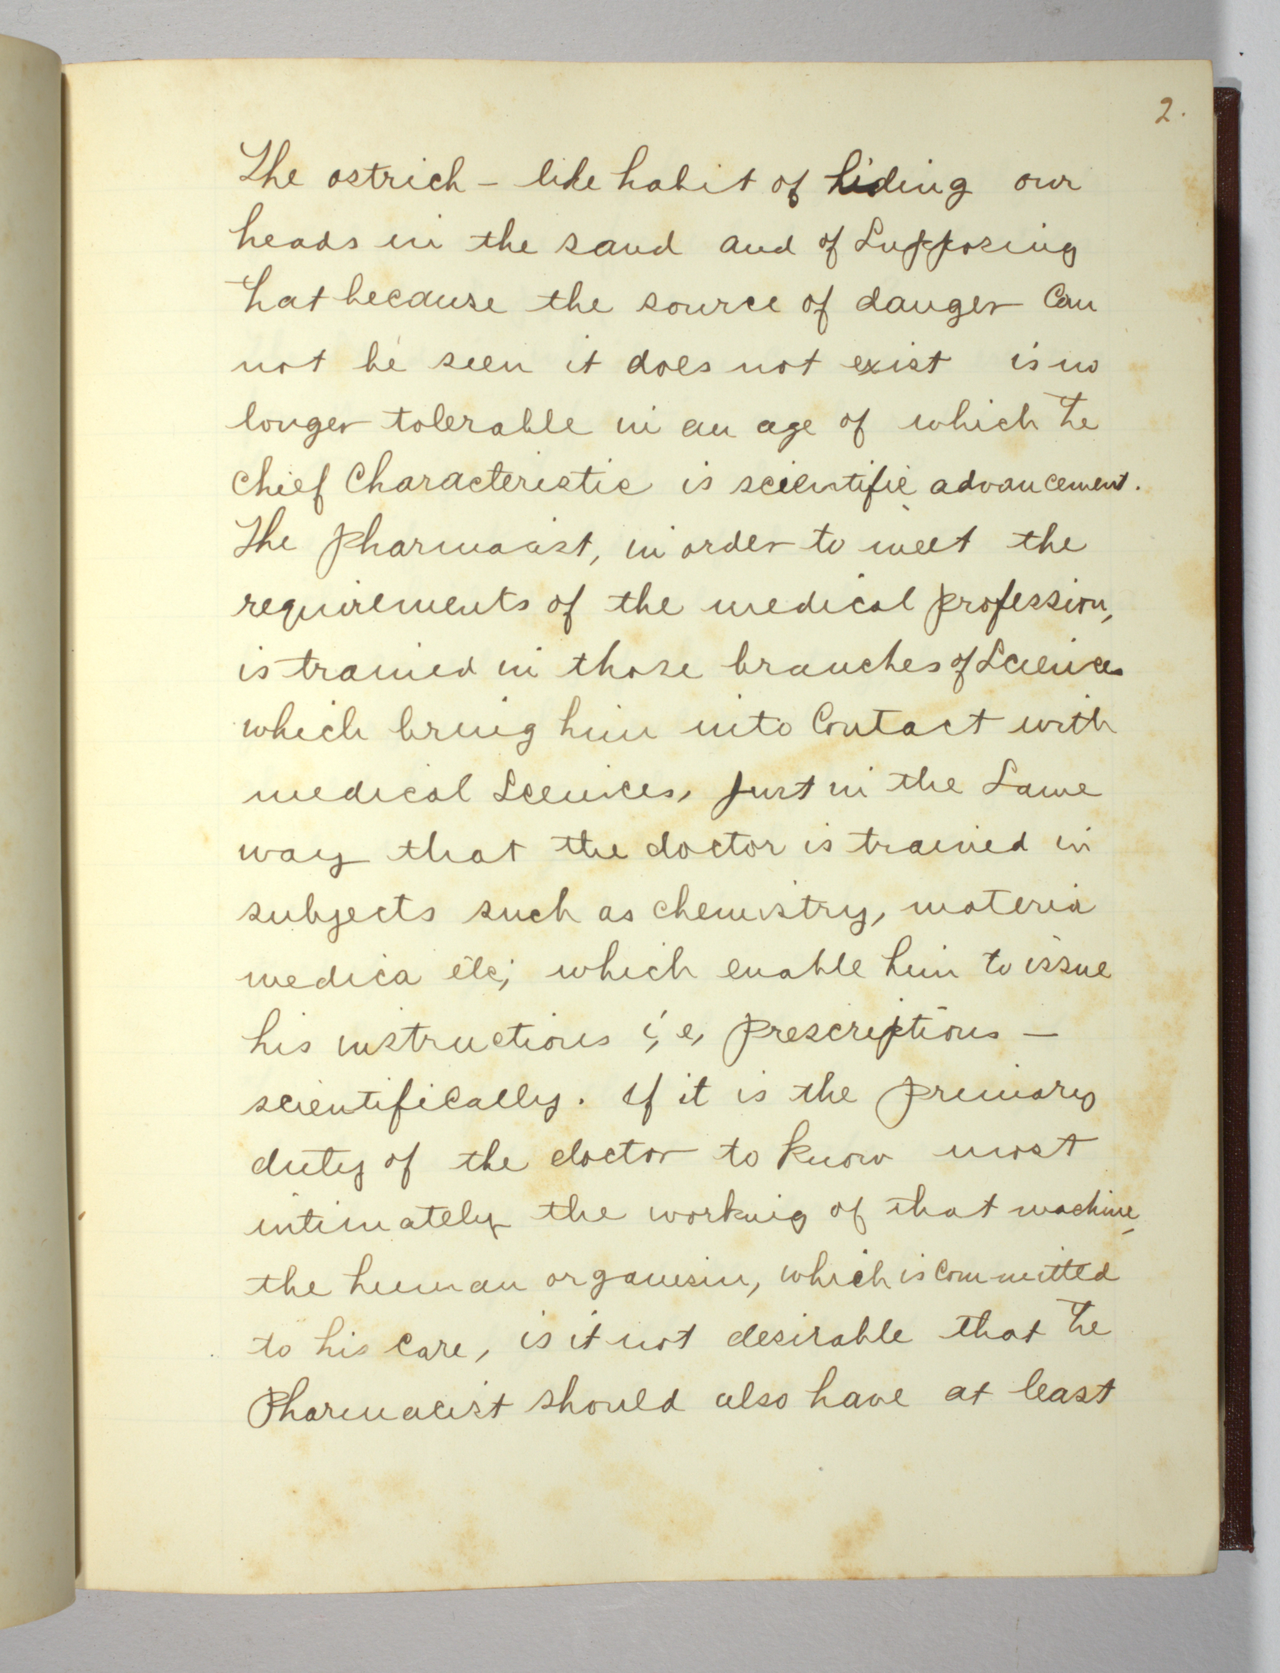 2.
The ostrich - like habit of hiding our
heads in the sand and of supposing
that because the source of danger can
not be seen it does not exist is no
longer tolerable in an age of which the
chief characteristic is scientific advancement.
The pharmacist, in order to meet the
requirements of the medical profession,
is trained in those branches of Sciences
which bring him into Contact with
medical Sciences, just in the same
way that the doctor is trained in
subjects such as chemistry, materia
medica etc; which enable him to issue
his instructions i, e, prescriptions -
scientifically. If it is the primary
duty of the doctor to know most
intimately the working of that machine,
the human organism, which is committed
to his care, is it not desirable that the
Pharmacist should also have at least